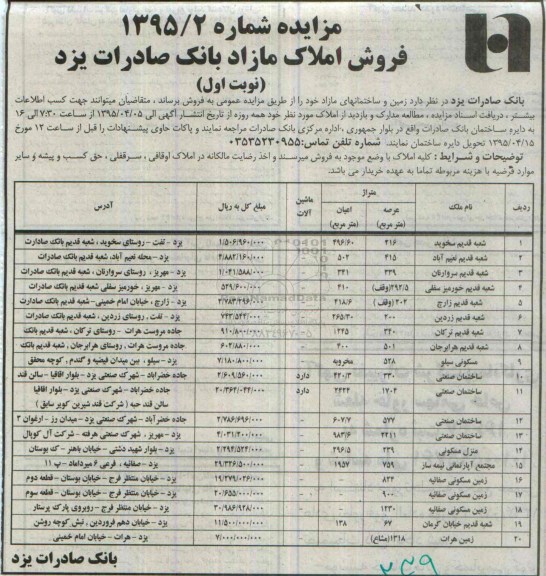 مزایده شماره ۱۳۹۵/۲
فروش املاک مازاد بانک صادرات یزد
(نوبت اول)
بانک صادرات یزد در نظر دارد زمین و ساختمانهای مازاد خود را از طریق مزایده عمومی به فروش برساند ، متقاضیان میتوانند جهت کسب اطلاعات
بیشتر ، دریافت اسناد مزایده ، مطالعه مدارک و بازدید از املاک مورد نظر خود همه روزه از تاریخ انتشار آگهی الی ۱۳۹۵/۰۴/۰۵ از ساعت ۷:۳۰ الی ۱۶
به دایره ساختمان بانک صادرات واقع در بلوار جمهوری ، اداره مرکزی بانک صادرات مراجعه نمایند و پاکات حاوی پیشنهادات را قبل از ساعت ۱۲ مورخ
۱۳۹۵/۰۴/۱۵ تحویل دایره ساختمان نمایند. شماره تلفن تماس: ۰۳۵۳۵۲۳۰۹۵۵
توضیحات و شرایط : کلیه املاک با وضع موجود به فروش میرسند و اخذ رضایت مالکانه در املاک اوقافی ، سرقفلی ، حق کسب و پیشه و سایر
موارد قرضیه با هزینه مربوطه تماما به عهده خریدار می باشد.
ردیف نام ملک متراژ عرصه (متر مربع) اعیان (متر مربع) ماشین آلات مبلغ کل به ریال آدرس
۱ شعبه قدیم سخوید ۴۱۶ ۴۹۶/۶۰ - ۱/۵۰۶/۹۶۰/۰۰۰ یزد - تفت - روستای سخوید ، شعبه قدیم بانک صادرات
۲ شعبه قدیم نعیم آباد ۴۱۵ ۵۰۲ - ۴/۸۸۲/۱۶۰/۰۰۰ یزد - محله نعیم آباد، شعبه قدیم بانک صادرات
۳ شعبه قدیم سروارتان ۳۳۹ ۳۴۱ - ۱/۰۴۱/۵۸۸/۰۰۰ یزد - مهریز ، روستای سروارتان ، شعبه قدیم بانک صادرات
۴ شعبه قدیم خورمیز سفلی ۴۹۲/۵(وقف) ۴۱۰ - ۵۲۹/۶۰۰/۰۰۰ یزد - مهریز ، خورمیز سفلی شعبه قدیم بانک صادرات
۵ شعبه قدیم زارچ ۲۰۴ (وقف) ۴۱۸/۶ - یزد - زارچ ، خیابان امام خمینی- شعبه قدیم بانک صادرات
۶ شعبه قدیم زردین ۲۰۰ ۲۶۵/۳۰ - ۷۴۲/۵۴۴/۰۰۰ یزد - تفت ، روستای زردین ، شعبه قدیم بانک صادرات
۷ شعبه قدیم ترکان ۳۴۰ ۱۲۴۵ - ۹۱۰/۸۰۰/۰۰۰ جاده مروست هرات - روستای ترکان ، شعبه قدیم بانک
۸ شعبه قدیم هرابرجان ۵۰۱ ۴۰۰ - ۶۰۲/۸۸۰/۰۰۰ جاده مروست هرات - روستای هرابرجان ، شعبه قدیم بانک
۹ مسکونی سیلو ۵۲۸ مخروبه - ۷/۱۸۰/۸۰۰/۰۰۰ یزد - سیلو ، بین میدان فیضیه و گندم ، کوچه محقق
۱۰ ساختمان صنعتی ۳۳۰ ۴۴۰/۳ دارد ۲/۶۰۹/۵۶۰/۰۰۰ جاده خضرآباد - شهرک صنعتی یزد - بلوار اقاقیا - سالن قند
۱۱ ساختمان صنعتی ۱۷۰۴ ۲۴۴۴ دارد ۲۰/۳۶۴/۰۴۴/۰۰۰ جاده خضرآباد - شهرک صنعتی یزد - بلوار اقاقیا
سالن قند حبه ( شرکت قند شیرین کویر سابق )
۱۲ ساختمان صنعتی ۵۷۷ ۶۰۷/۷ - ۲/۷۸۶/۶۹۶/۰۰۰ جاده خضرآباد - شهرک صنعتی یزد - میدان رز - ارغوان ۲
۱۳ ساختمان صنعتی ۲۴۱۱ ۹۸۳/۶ - ۴/۰۳۱/۴۰۰/۰۰۰ یزد - مهریز ، شهرک صنعتی هرفته - شرکت آل کوپال
۱۴ منزل مسکونی ۲۳۹ ۲۹۶/۵ - ۲/۲۹۴/۵۲۴/۰۰۰ یزد - بلوار شهید دشتی - خیابان باهنر - ک بوستان
۱۵ مجتمع آپارتمانی نیمه ساز ۷۵۹ ۱۹۵۷ - ۲۹/۳۳۶/۵۰۰/۰۰۰ یزد - صفائیه ، فرعی ۶ میرداماد - پ ۱۱
۱۶ زمین مسکونی صفائیه ۸۲۴ - - ۱۹/۲۷۹/۰۴۶/۰۰۰ یزد - خیابان منتظر فرج - خیابان بوستان - قطعه دوم
۱۷ زمین مسکونی صفائیه ۹۰۰ - - ۲۰/۶۵۵/۰۰۰/۰۰۰ یزد - خیابان منتظر فرج - خیابان بوستان - قطعه سوم
۱۸ زمین مسکونی صفائیه ۱۲۳۰ - - ۳۰/۹۸۶/۹۲۸/۰۰۰ یزد - خیابان منتظر فرج - روبروی پارک پرستار
۱۹ شعبه قدیم خیابان کرمان ۶۷ ۱۳۸ - ۱۱/۵۰۰/۰۰۰/۰۰۰ یزد - خیابان دهم فروردین ، نبش کوچه روشن
۲۰ زمین هرات ۱۳۱۸(مشاع) - ۷/۰۰۰/۰۰۰/۰۰۰ یزد - هرات - خیابان امام خمینی
بانک صادرات یزد